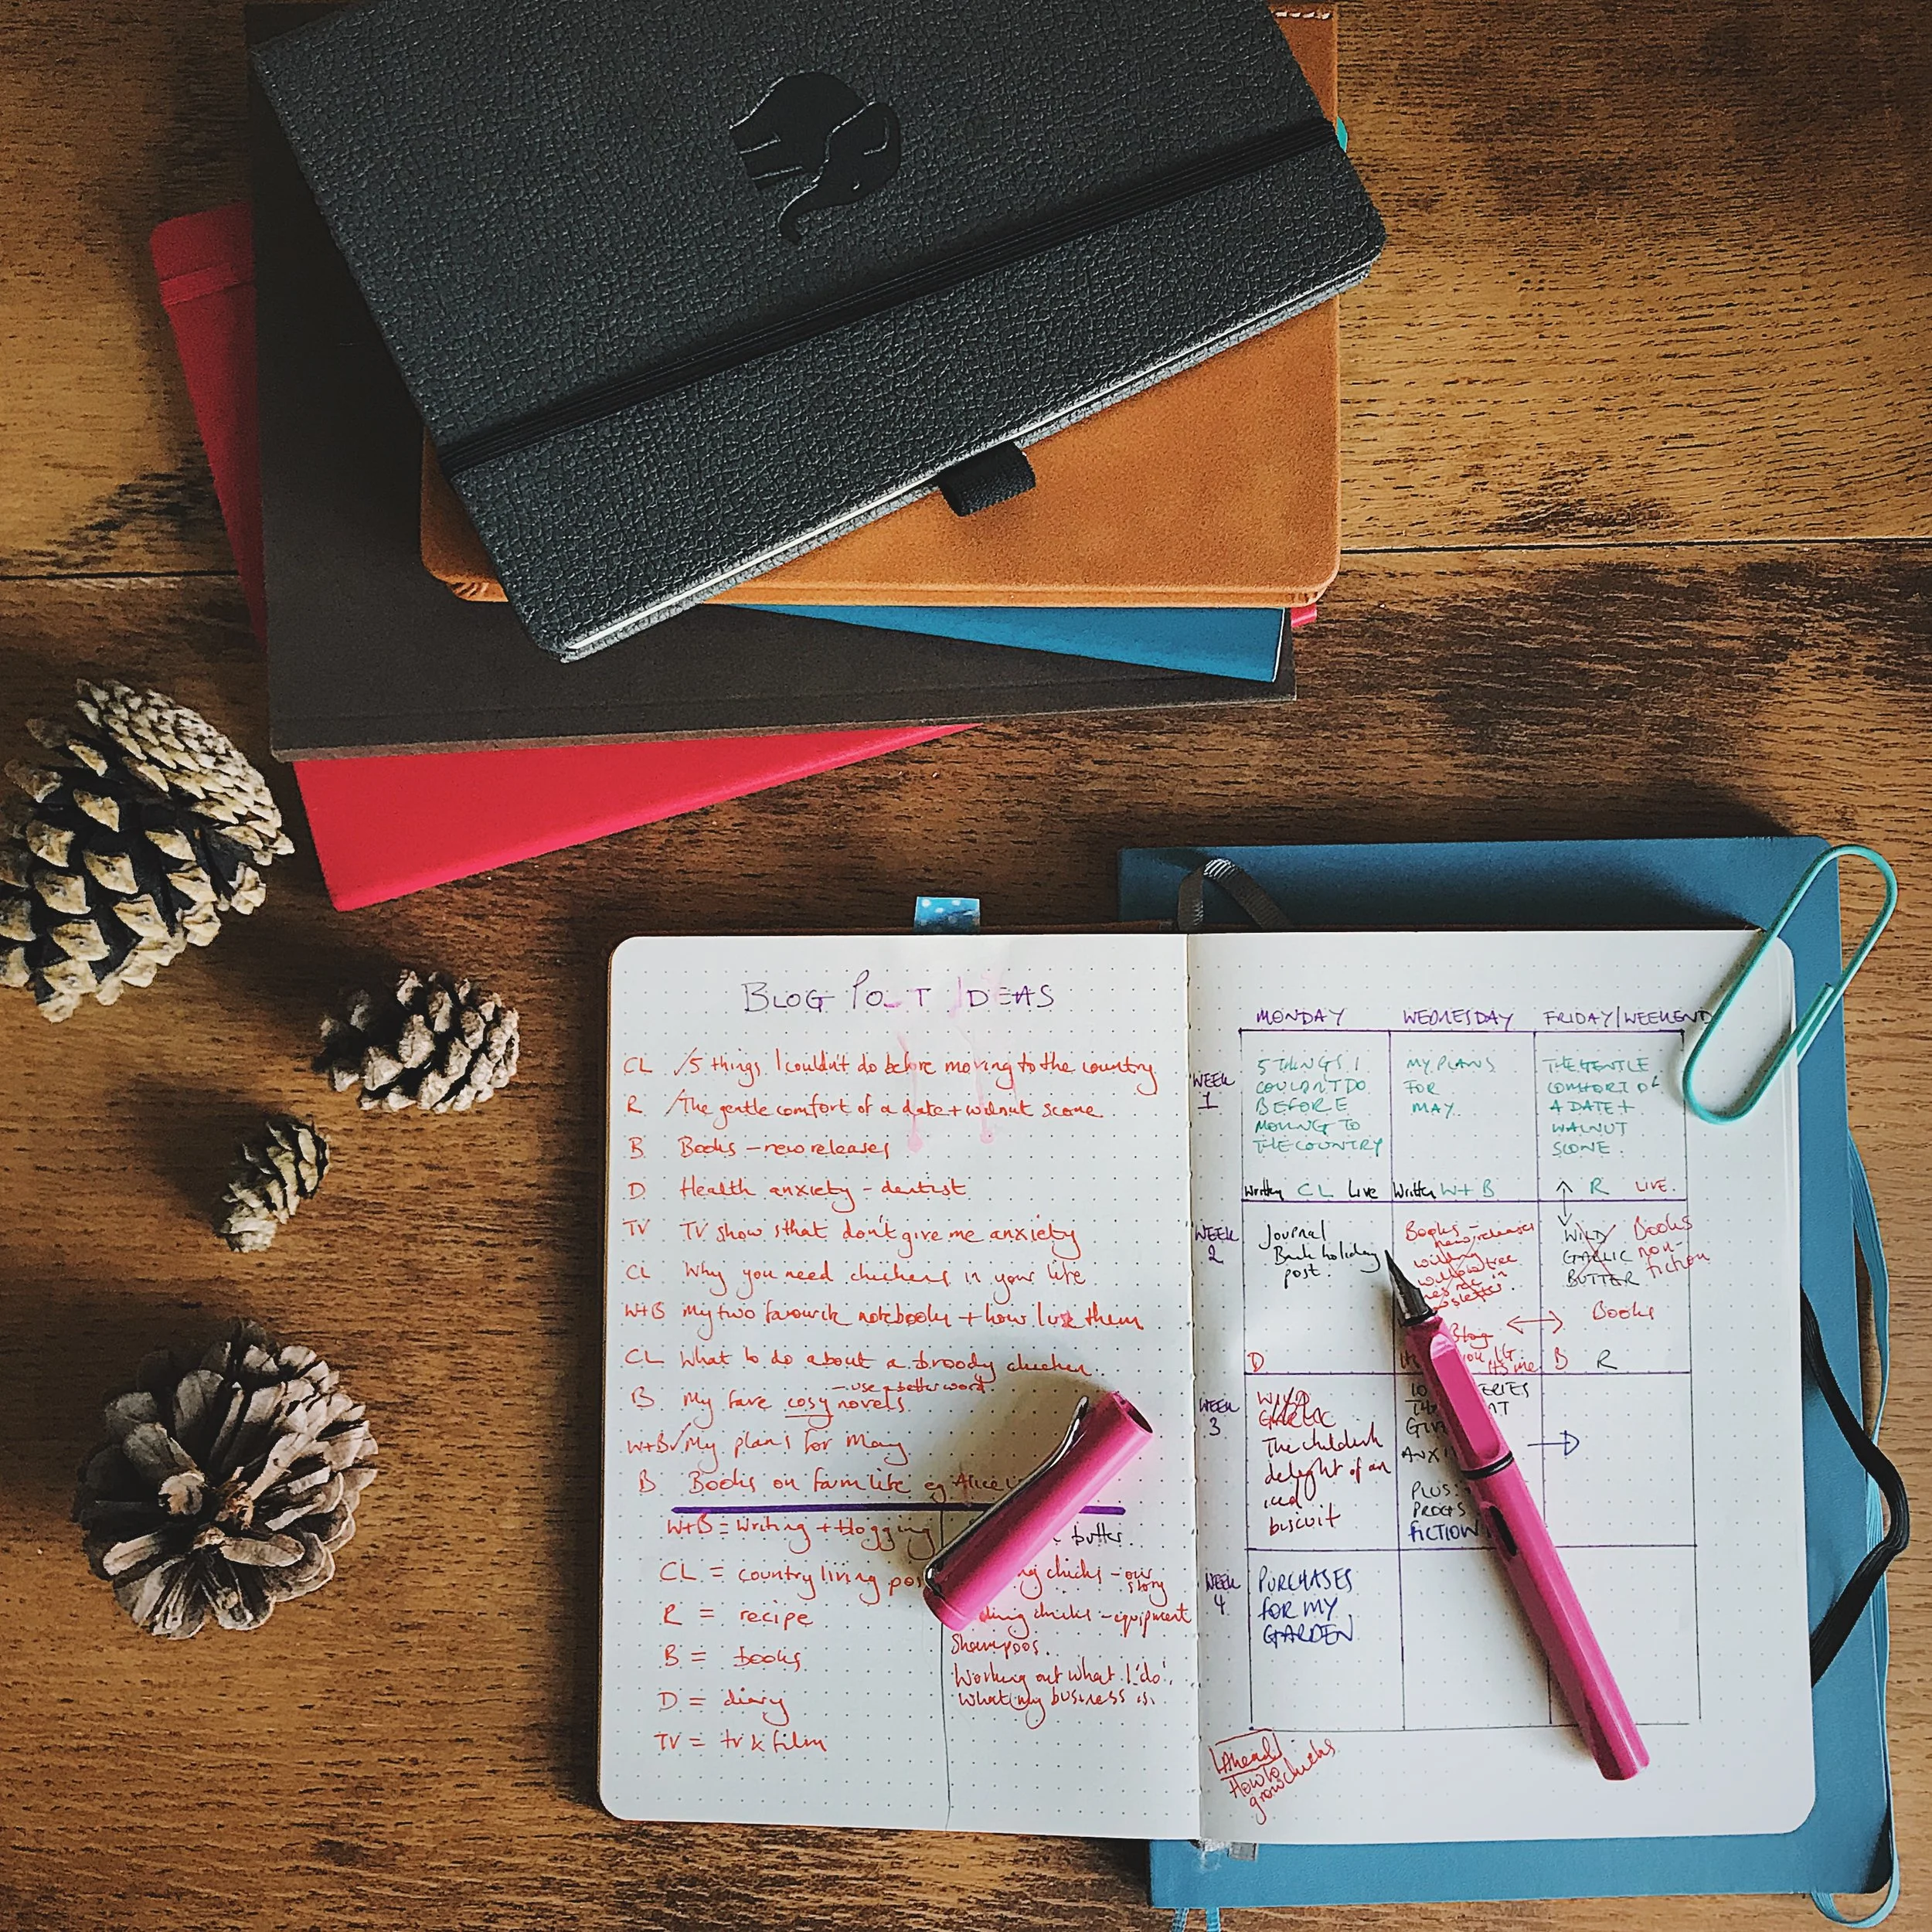 BLOG POST IDEAS
CL ✓5 things I couldn't do before moving to the country
R ✓The gentle comfort of a date + walnut scone
B Books - new releases
D Health anxiety - dentist
TV TV shows that don't give me anxiety
CL Why you need chickens in your life
W+B My two favourite notebooks + how I use them
CL What to do about a broody chicken
- use a better word
B My fave cosy novels
W+B ✓My plans for May
B Books on farm life eg Alice
W+B = writing + blogging
CL = country living
R = recipe
B = books
D = diary
TV = tv & film
butter.
chicks - our
story
chicks - equipment
Shampoos.
Working out what I 'do',
what my business is.
MONDAY WEDNESDAY FRIDAY/WEEKEND
WEEK 1
5 THINGS I
COULDN'T DO
BEFORE
MOVING TO
THE COUNTRY
Written CL Live
MY PLANS
FOR
MAY
Written W+B
THE GENTLE
COMFORT OF
A DATE +
WALNUT
SCONE
R LIVE
WEEK 2
Journal
Bank holiday
post.
D
Books -
new releases
willow tree
Blog
WILD
GARLIC
BUTTER
Books
non-
fiction
Books
B R
WEEK 3
WILD
GARLIC
The childish
delight of an
iced
biscuit
10
PLUS:
FICTION
WEEK 4
PURCHASES
FOR MY
GARDEN
Ahead
How to
grow chicks